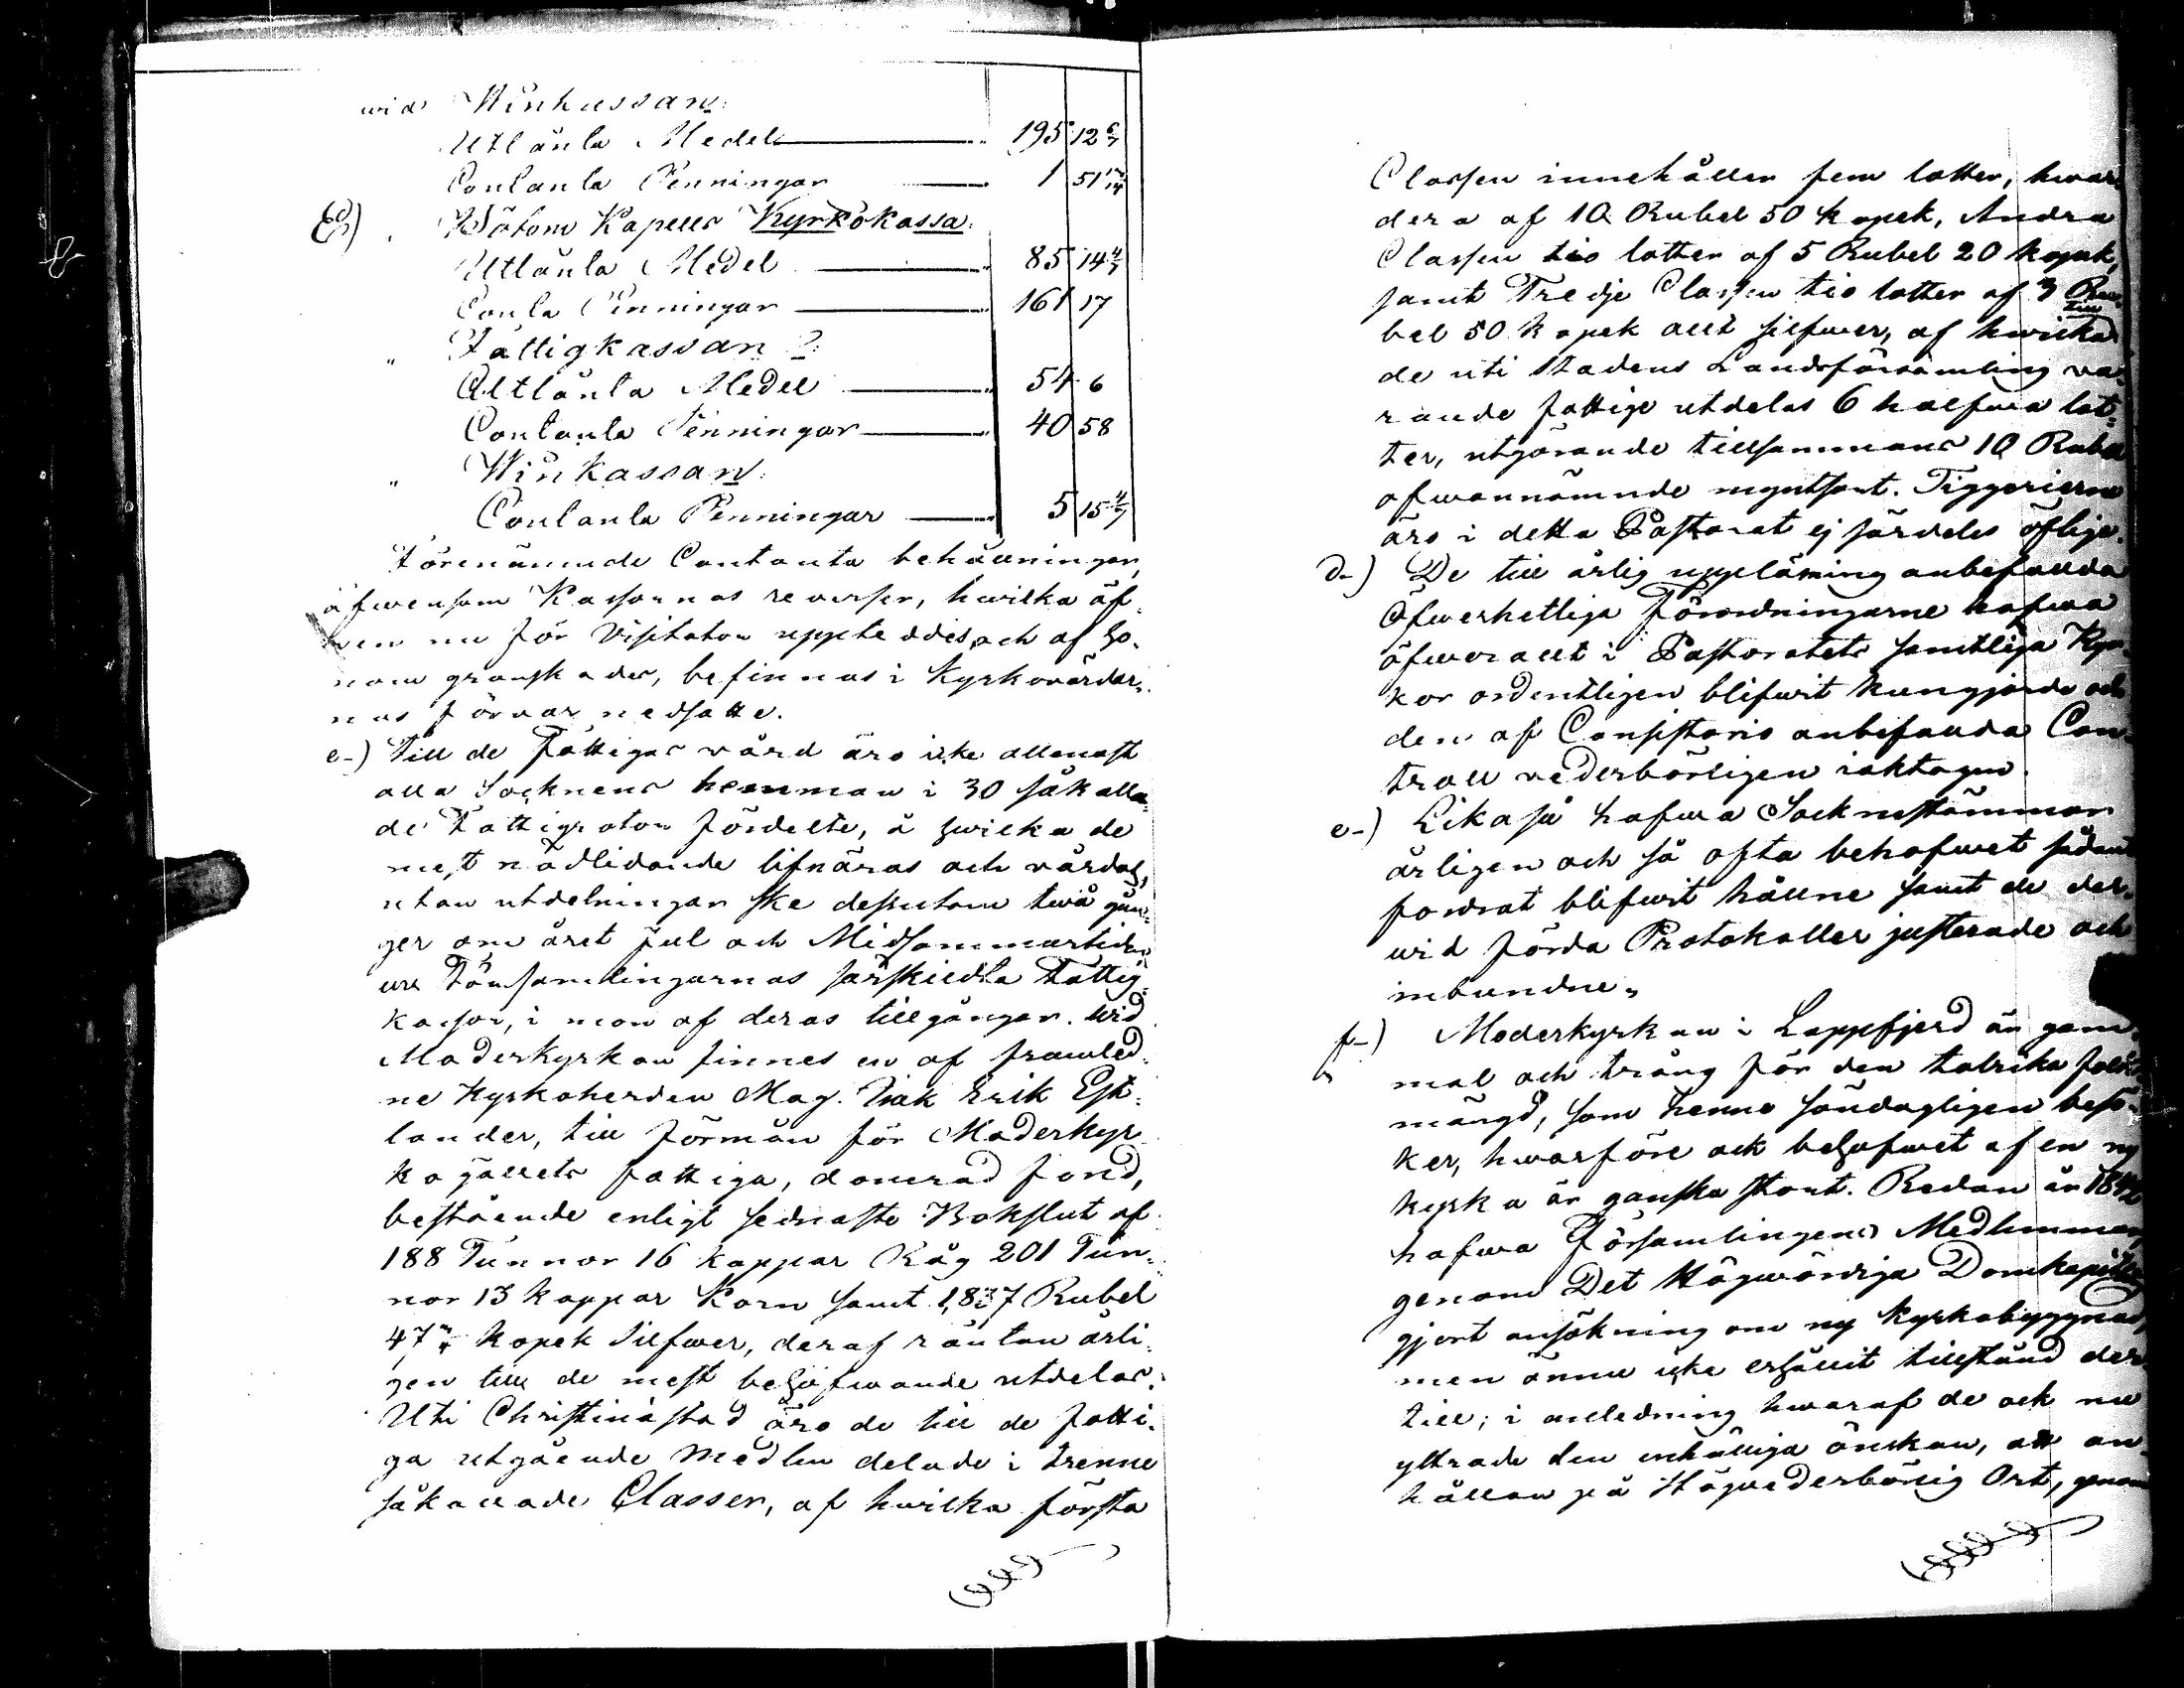 wid Winkassan.
Utlånta Medel 195 12 6/7
Contanta Penningar 1 51 17/14
Bötom Kapells Kyrkokassa.
Utlånta Medel 85 14 4/7
Conta Penningar 161 17
" Fattigkassan
Utlånta Medel 54 6
Contanta Penningar 40 58
" Winkassan.
Contanta Penningar 5 15 4/7
Förenämnde Contanta behållningar,
äfwensom Kassornas reverser, hwilka äf-
wen nu för Visitator uppteddes och af ho-
nom granskades, befinnas i Kyrkovärdar-
nas förvar nedsatte.
c-) Till de Fattigas wård äro icke allenast
alla Socknens hemman i 30 såkalla-
de Fattigrotar fördelte, å hwilka de
mest nödlidande lifnäras och vårdas,
utan utdelningar ske dessutom twå gån-
ger om året Jul och Midsommartiden
ur Församlingarnas särskildta Fattig-
kassor, i mon af deras tillgångar. Wid
Moderkyrkan finnes en af framled-
ne Kyrkoherden Mag. Isak Erik Est-
lander, till förmån för Moderkyr-
kogällets fattiga, donerad fond,
bestående enligt sednaste Bokslut af
188 Tunnor 16 kappar Råg 201 Tun-
nor 13 kappar Korn samt 1,837 Rubel
47 kopek Silfwer, deraf räntan årli-
gen till de mest behöfwande utdelas.
Uti Christinæstad äro de till de fatti-
ga utgående Medlen delade i trenne
såkallade Classer, af hwilka första
Classen innehåller fem lotter, hwar-
dera af 10 Rubel 50 kopek, Andra
Classen tio lotter af 5 Rubel 20 kopek,
samt Tredje Classen tio lotter af 3 Ru-
bel 50 kopek allt silfwer, af hwilka
de uti Stadens Landsförsamling va-
rande fattige utdelas 6 halfwa lot-
ter, utgörande tillsammans 10 Rubel
ofwannämnde myntsort. Tiggerierne
äro i detta Pastorat ej särdeles öflige.
d-) De till årlig uppläsning anbefallda
Öfwerhetliga Förordningarne hafwa
öfwerallt i Pastoratets samtliga Kyr-
kor ordentligen blifwit kungjorde och
den af Consistorio anbefallda Con-
troll vederbörligen iakttagen.
e-) Likaså hafwa Socknestämmor
årligen och så ofta behofwet sådant
fordrat blifwit hållne samt de der-
wid förda Protokoller justerade och
inbundne.
f-) Moderkyrkan i Lappfjerd är gam-
mal och trång för den talrika folk-
mängd, som henne söndagligen besö-
ker, hwarföre ock behofwet af en ny
kyrka är ganska stort. Redan år
hafwa Församlingens Medlemmar
genom Det Högwördiga Domkapitlet
gjort ansökning om ny kyrkobyggnad,
men ännu icke erhållit tillstånd der-
till; i anledning hwaraf de ock nu
yttrade den enhälliga önskan, att an-
hållan på Högvederbörlig Ort, genom